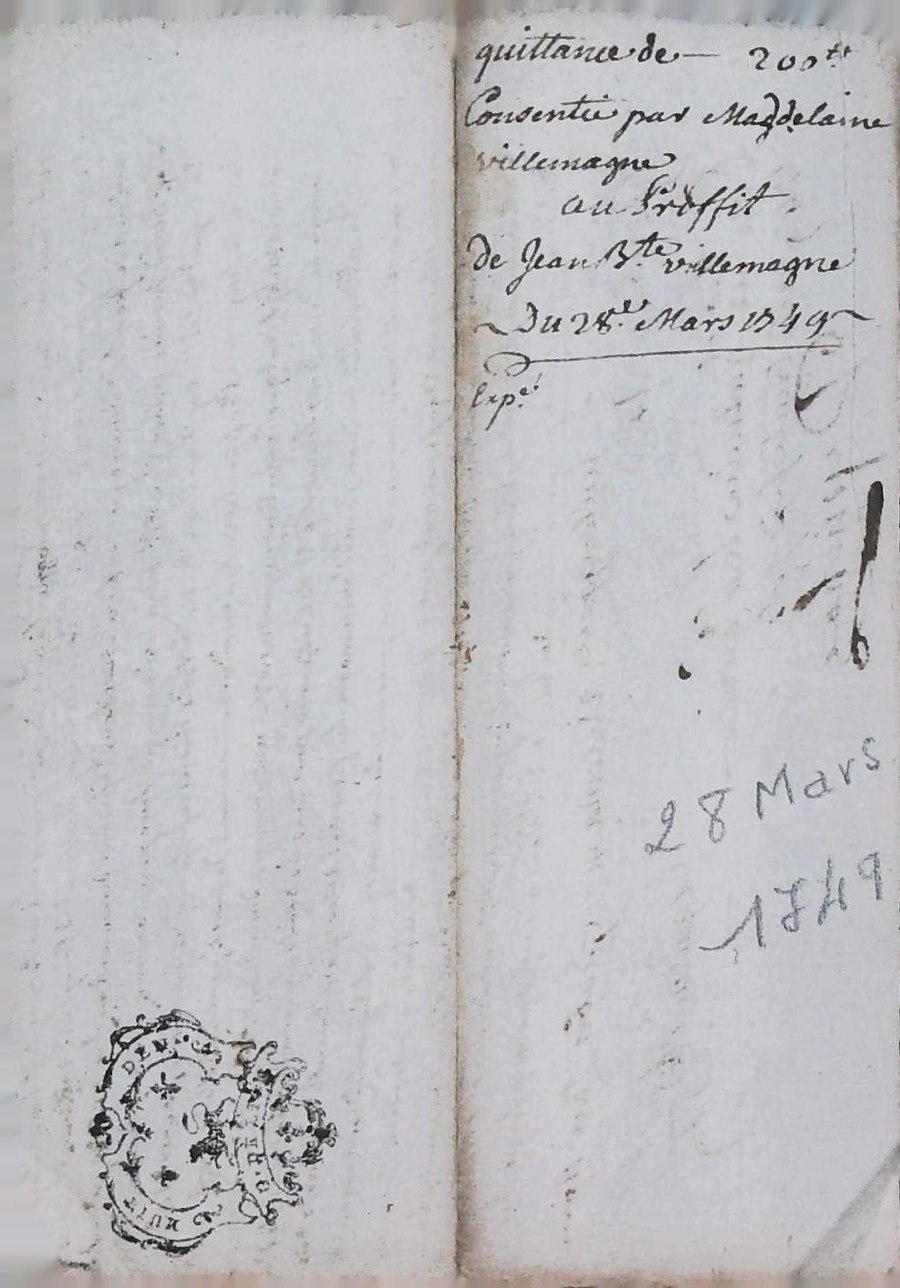 quittance de — 200tt
Consentie par Magdelaine
villemagne
au Proffit
de Jean Bte villemagne
~ Du 28e Mars 1749 ~
Expe
28 Mars
1749
HUIT DEN